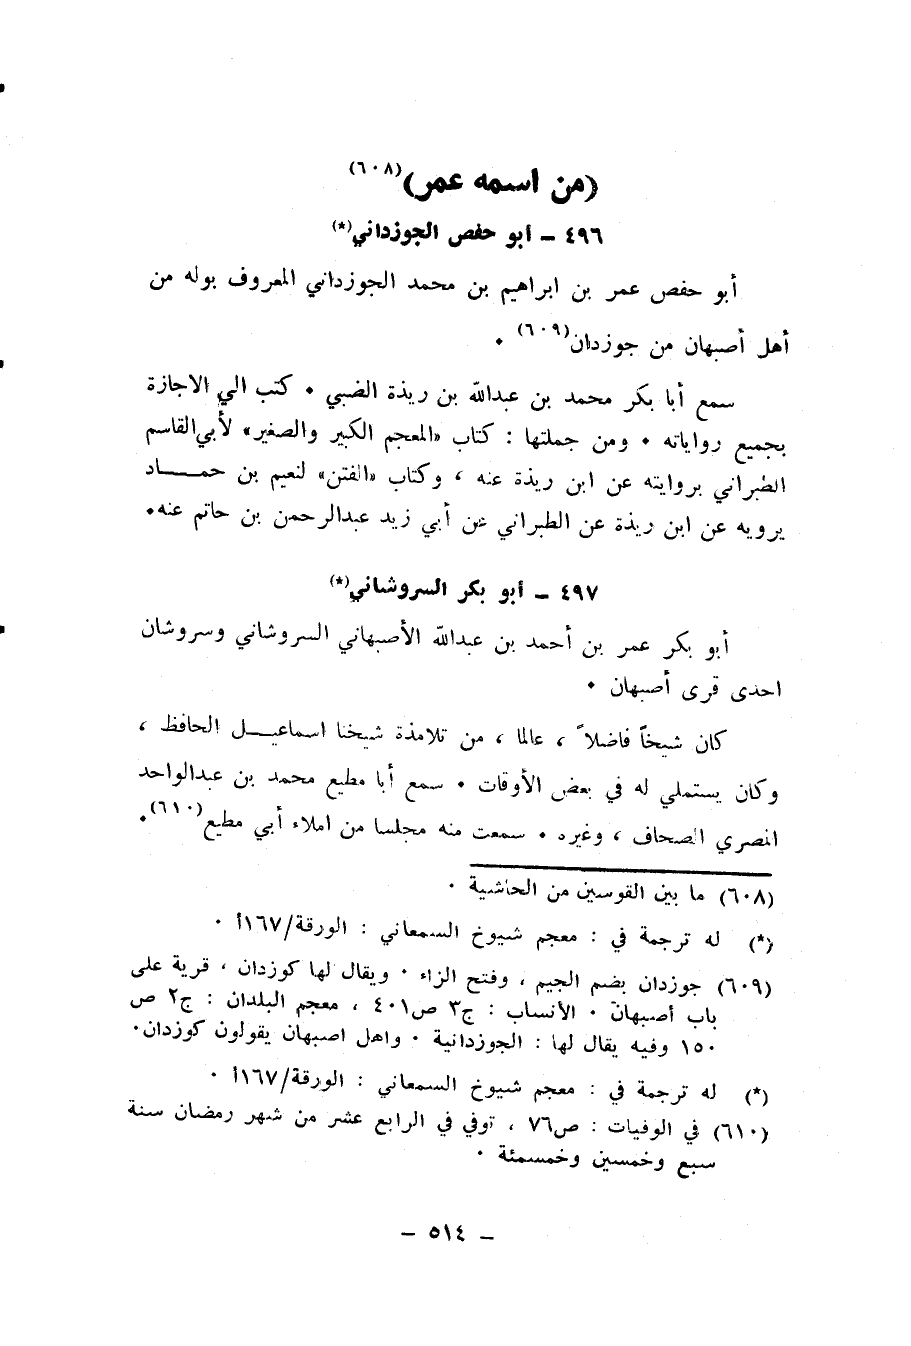 (من اسمه عمر)(٦٠٨)
٤٩٦ ـ أبو حفص الجوزداني(*)
أبو حفص عمر بن ابراهيم بن محمد الجوزداني المعروف بوله من
أهل أصبهان من جوزدان(٦٠٩) ٠
سمع أبا بكر محمد بن عبدالله بن ريذة الضبي ٠ كتب الي الاجازة
بجميع رواياته ٠ ومن جملتها : كتاب «المعجم الكبير والصغير» لأبي القاسم
الطبراني بروايته عن ابن ريذة عنه ، وكتاب «الفتن» لنعيم بن حمـــاد
يرويه عن ابن ريذة عن الطبراني عن أبي زيد عبدالرحمن بن حاتم عنه٠
٤٩٧ ـ أبو بكر السروشاني(*)
أبو بكر عمر بن أحمد بن عبدالله الأصبهاني السروشاني وسروشان
احدى قرى أصبهان ٠
كان شيخاً فاضلاً ، عالما ، من تلامذة شيخنا اسماعيـــل الحافظ ،
وكان يستملي له في بعض الأوقات ٠ سمع أبا مطيع محمد بن عبدالواحد
المصري الصحاف ، وغيره ٠ سمعت منه مجلسا من املاء أبي مطيع(٦١٠)٠
(٦٠٨) ما بين القوسين من الحاشية ٠
(*) له ترجمة في : معجم شيوخ السمعاني : الورقة/١٦٧أ ٠
(٦٠٩) جوزدان بضم الجيم ، وفتح الزاء ٠ ويقال لها كوزدان ، قرية على
باب أصبهان ٠ الأنساب : ج٣ ص٤٠١ ، معجم البلدان : ج٢ ص
١٥٠ وفيه يقال لها : الجوزدانية ٠ واهل اصبهان يقولون كوزدان٠
(*) له ترجمة في : معجم شيوخ السمعاني : الورقة/١٦٧أ ٠
(٦١٠) في الوفيات : ص٧٦ ، توفي في الرابع عشر من شهر رمضان سنة
سبع وخمسين وخمسمئة ٠
ـ ٥١٤ ـ